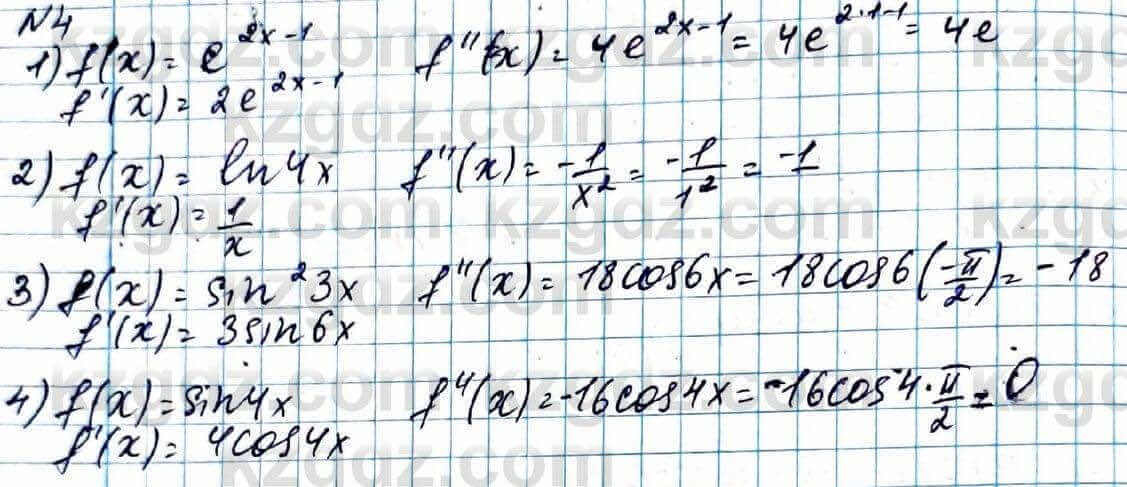 N4
1) f(x) = e^{2x-1} f''(x) = 4e^{2x-1} = 4e^{2·1-1} = 4e
f'(x) = 2e^{2x-1}
2) f(x) = ln4x f''(x) = -1/x² = -1/1² = -1
f'(x) = 1/x
3) f(x) = sin²3x f''(x) = 18cos6x = 18cos6(-π/2) = -18
f'(x) = 3sin6x
4) f(x) = sin4x f''(x) = -16cos4x = -16cos4·π/2 = 0
f'(x) = 4cos4x
kzgdz.com kzgdz.com kzgdz.com